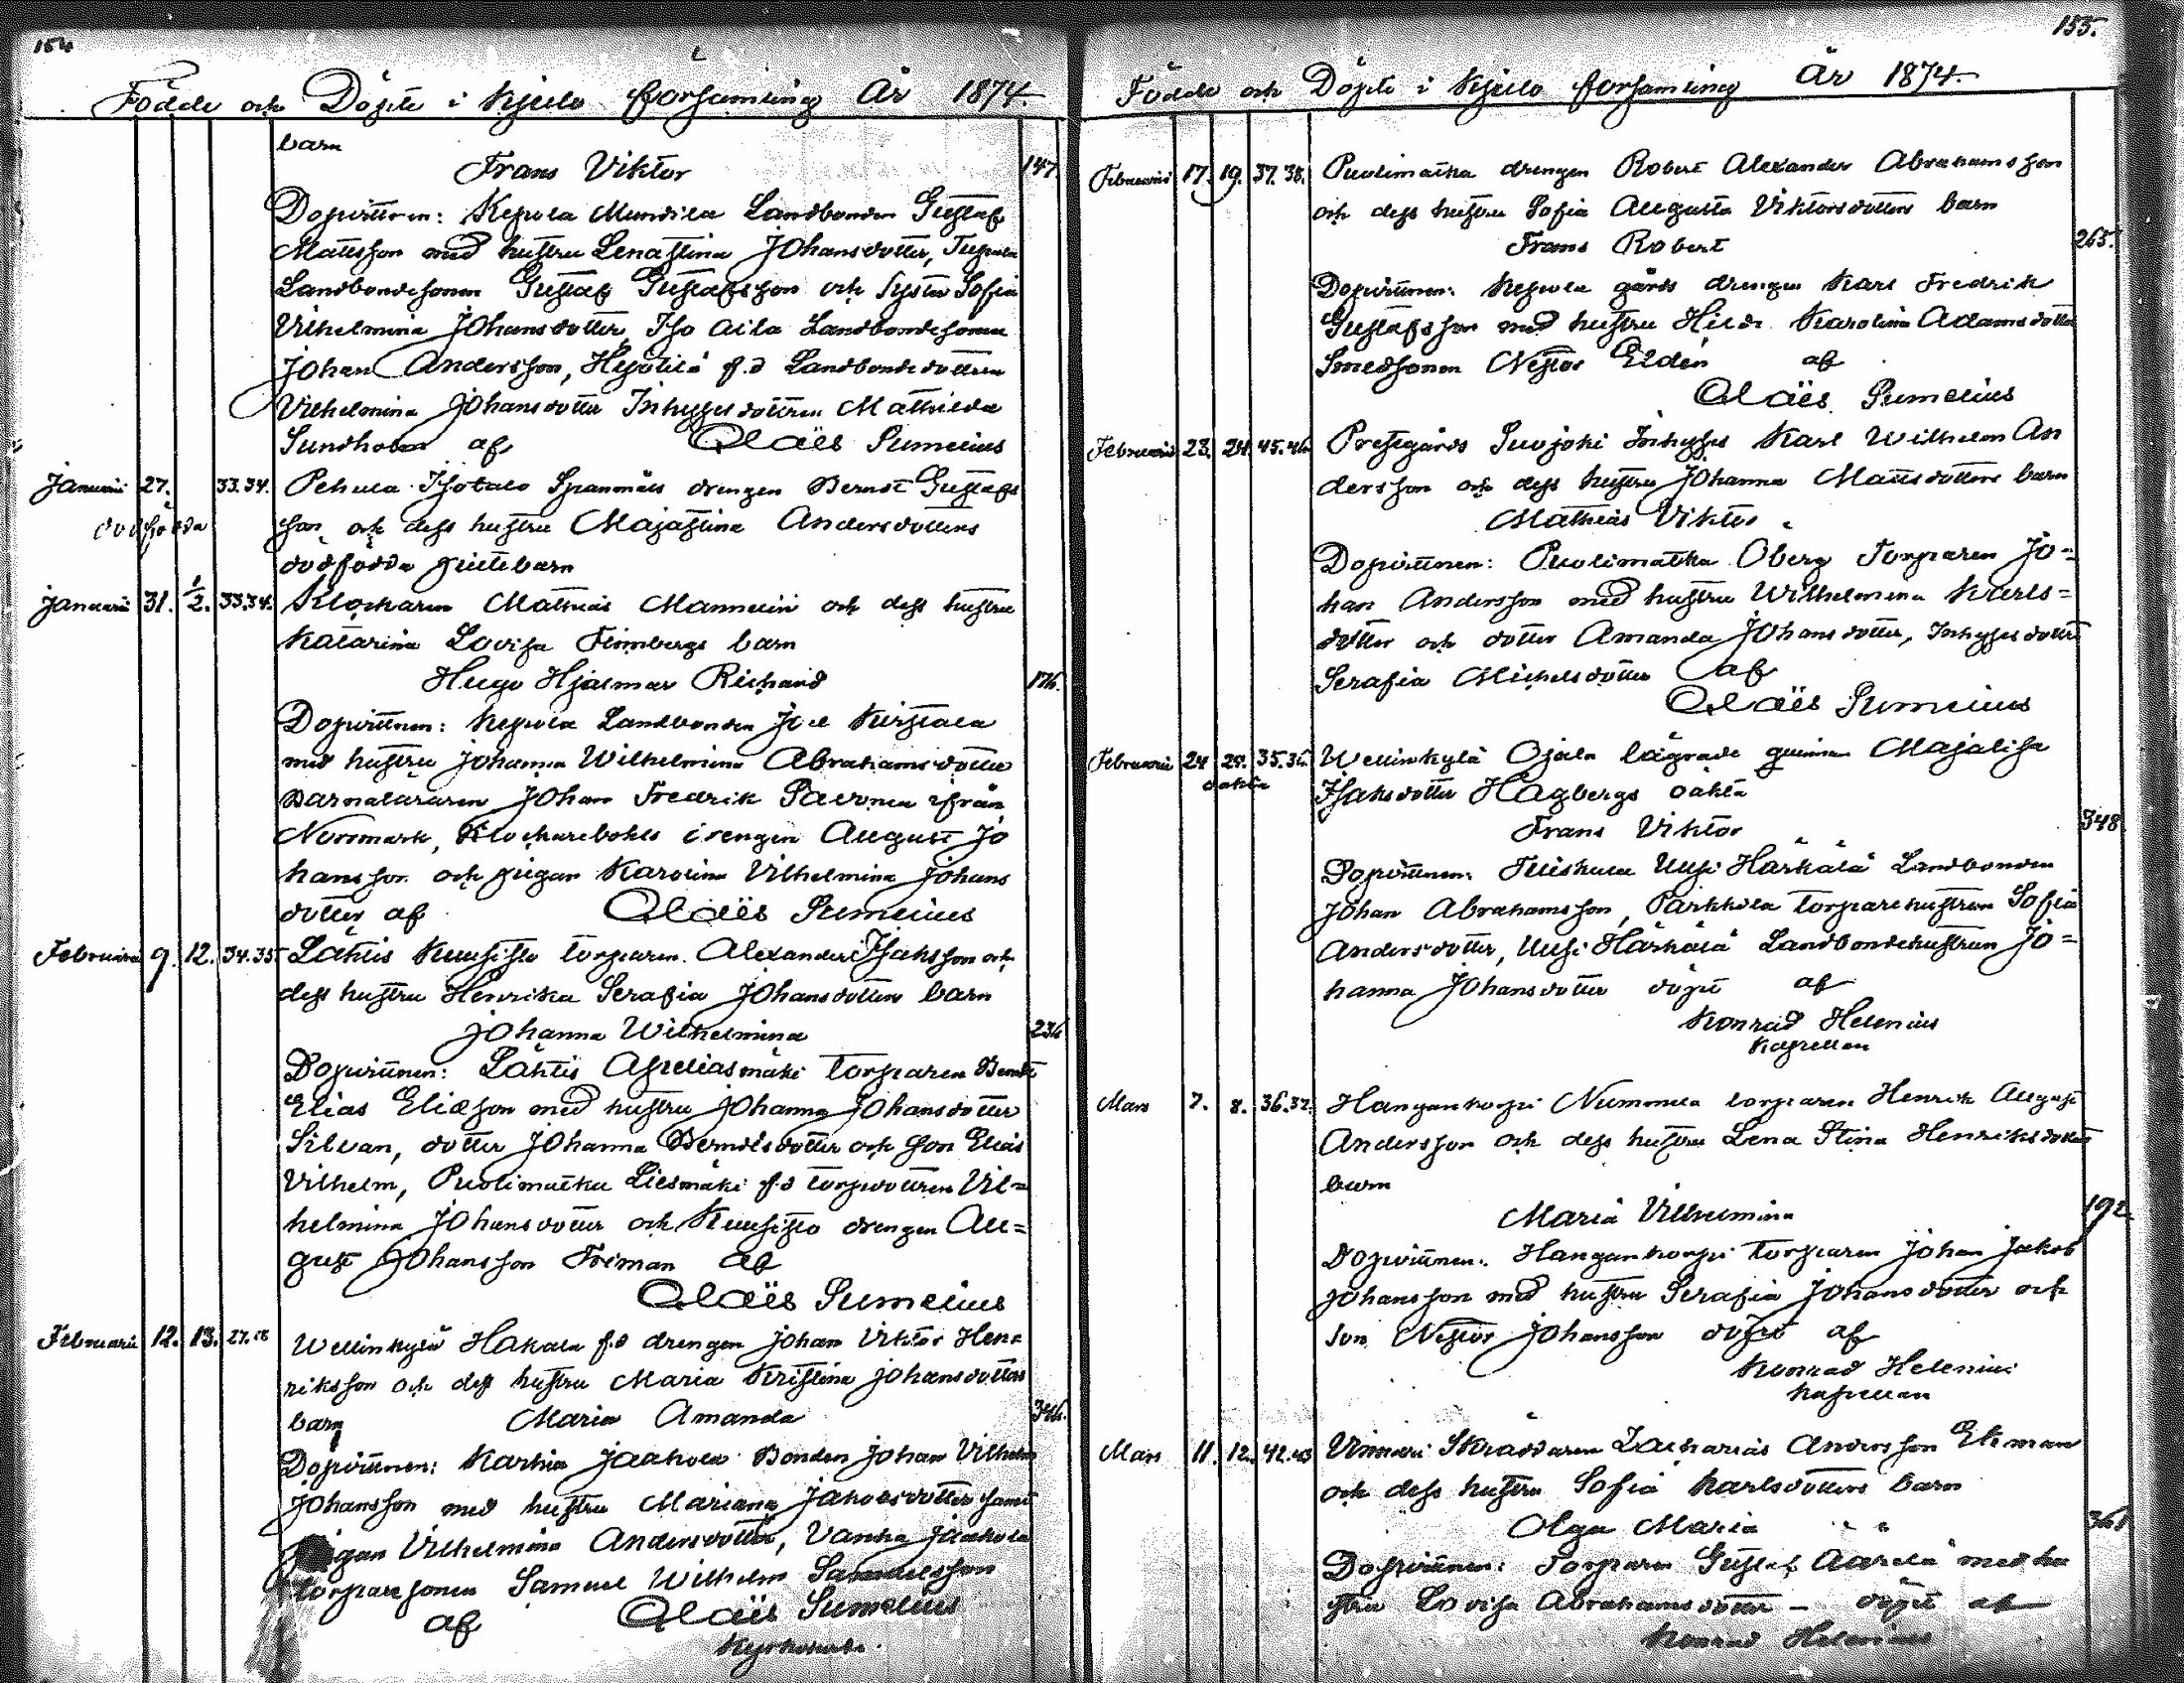 154
Födde och Döpte i Kjulo församling År 1874.
barn
Frans Viktor 147.
Dopvittnen: Kepola Mundila Landbonden Gustaf
Mattsson med hustru Lenastina Johansdotter,
Landbondesonen Gustaf Gustafsson och Syster Sofia
Vilhelmina Johansdotter, Iso Aila Landbondesonen
Johan Andersson, Hejolilä f.d Landbondedottren
Vilhelmina Johansdotter Inhysesdottren Mathilda
Sundholm af Claës Sumelius
Januarii 27. 33.34. Pehula Isotalo Spanmäls drengen Berndt Gustafs
dödfödda son och dess hustru Majastina Andersdotters
dödfödda gossebarn
Januarii 31. 1/2. 33.34. Klockaren Mathias Mannelin och dess hustru
Katarina Lovisa Flinkbergs barn
Hugo Hjalmar Richard 176.
Dopvittnen: Kepola Landbonden Joel Kirstala
med hustru Johanna Wilhelmina Abrahamsdotter
Barnaläraren Johan Fredrik Palomea ifrån
Norrmark, Klockarebohls drengen August Jo
hansson och pigan Karolina Vilhelmina Johans
dotter af Claës Sumelius
Februarii 9. 12. 34.35. Lähtis Kuusisto torparen Alexander Isaksson och
dess hustru Henrika Serafia Johansdotters barn
Johanna Wilhelmina 236
Dopvittnen: Lähtis Apeliasmäki torparen Berndt
Elias Eliasson med hustru Johanna Johansdotter
Silvan, dotter Johanna Berndtsdotter och son Elias
Vilhelm, Puolimatka Liesmäki f.d torpdottren Vil=
helmina Johansdotter och Kuusisto drengen Au=
gust Johansson Friman af
Claës Sumelius
Februarii 12. 13. 27.28 Wellinkylä Hakala f.d drengen Johan Viktor Hen=
riksson och dess hustru Maria Kristina Johansdotters
barn Maria Amanda 346.
Dopvittnen: Karhia Jaakola Bonden Johan Vilhelm
Johansson med hustru Mariana Jakobsdotter samt
pigan Vilhelmina Andersdotter, Vanha Jaakola
torparesonen Samuel Wilhelm Samuelsson
af Claës Sumelius
Kyrkoherde.
155.
Födde och Döpte i Kjulo församling År 1874.
Februarii 17. 19. 37.38. Puolimatka drengen Robert Alexander Abrahamsson
och dess hustru Sofia Augusta Viktorsdotters barn
Frans Robert 265.
Dopvittnen: Kepola gårds drengen Karl Fredrik
Gustafsson med hustru Heda Karolina Adamsdotter
Smedsonen Nestor Eldén af
Claës Sumelius
Februarii 23. 24. 45.46. Prestgårds Suojoki Inhyses Karl Wilhelm An
dersson och dess hustru Johanna Mattsdotters barn
Mathias Viktor
Dopvittnen: Puolimatka Oberg Torparen Jo=
han Andersson med hustru Wilhelmina Karls=
dotter och dotter Amanda Johansdotter, Inhysesdottren
Serafia Michelsdotter af
Claës Sumelius
Februarii 24 25. 35.36. Wellinkylä Ojala lägrade qvinnan Majalisa
oäkta Isaksdotter Hagbergs oäkta
Frans Viktor 348
Dopvittnen: Tuiskula Uusi Härkälä Landbonden
Johan Abrahamsson, Pärkkola torparehustrun Sofia
Andersdotter, Uusi Härkälä Landbondehustrun Jo=
hanna Johansdotter döpt af
Konrad Helenius
Kapellan
Mars 7. 8. 36.37. Hangankorpi Nummela torparen Henrik August
Andersson och dess hustru Lena Stina Henriksdotters
barn
Maria Vilhelmina 192.
Dopvittnen: Hangankorpi torparen Johan Jakob
Johansson med hustru Serafia Johansdotter och
son Nestor Johansson döpt af
Konrad Helenius
Kapellan
Mars 11. 12. 42.43 Vinnari Skräddaren Zacharias Andersson Ekman
och dess hustru Sofia Karlsdotters barn
Olga Maria 361
Dopvittnen: Torparen Gustaf Aarela med hu
stru Lovisa Abrahamsdotter – döpt af
Konrad Helenius